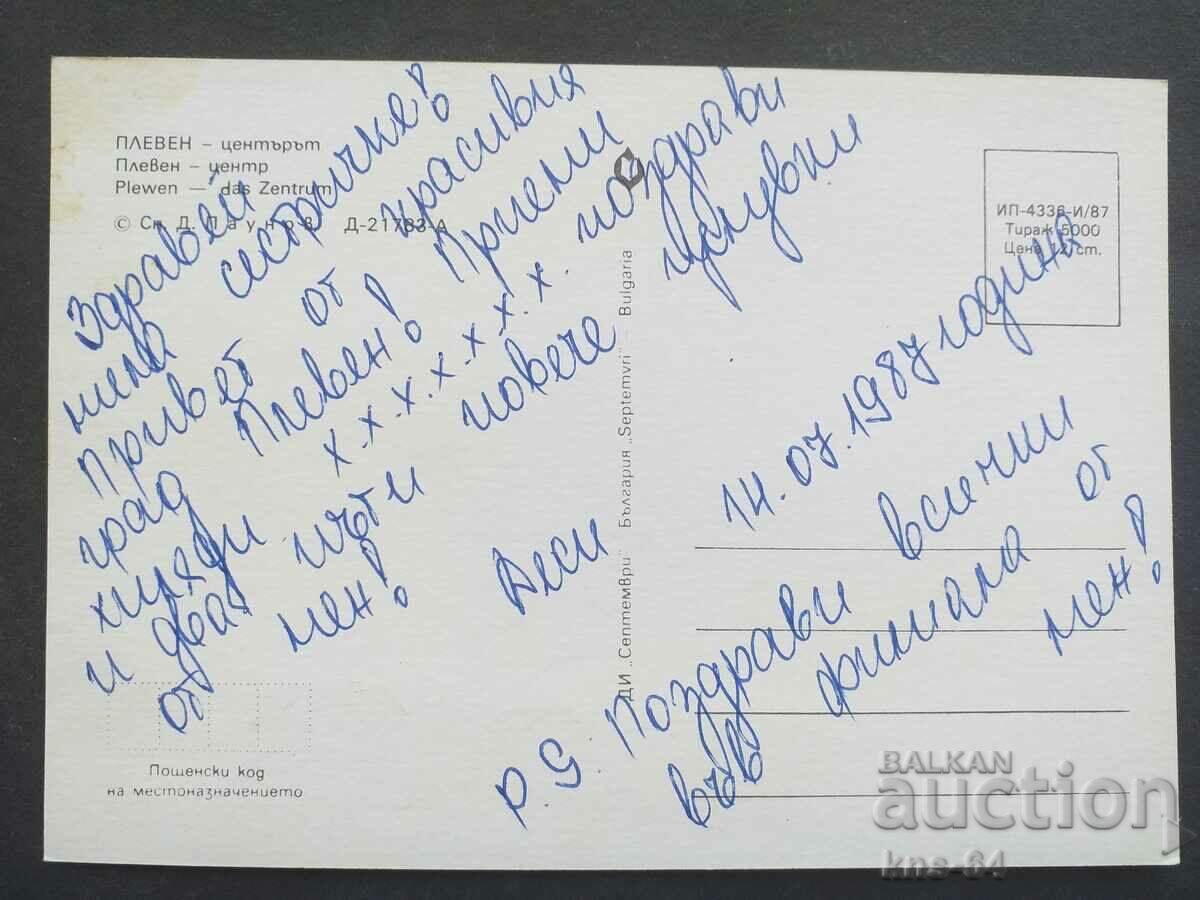 ПЛЕВЕН — центърът
Плевен — центр
Plewen — das Zentrum
© Сн. Д. Паунов Д-21783-А
ИП-4336-И/87
Тираж 5000
Цена 12 ст.
Здравей
мила сестричке!
Привет от красивия
град Плевен! Приеми
х.х.х.х.х.х.х. поздрави
хиляди
и два пъти повече целувки
от мен!
Деси
14.07.1987 година
P.S. Поздрави всички
във филиала от
мен!
ДИ „Септември" България „Septemvri" — Bulgaria
Пощенски код
на местоназначението
BALKAN
auction
kns-64